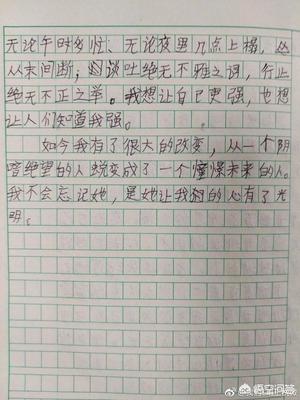 无论午时多忙、无论夜里几点上榻,
从未间断;谈吐绝无不雅之词,行止
绝无不正之举。我想让自己更强,也想
让人们知道我强。
如今我有了很大的改变,从一个阴
暗绝望的人蜕变成了一个憧憬未来的人。
我不会忘记她,是她让我的心有了光
明。
悟空问答